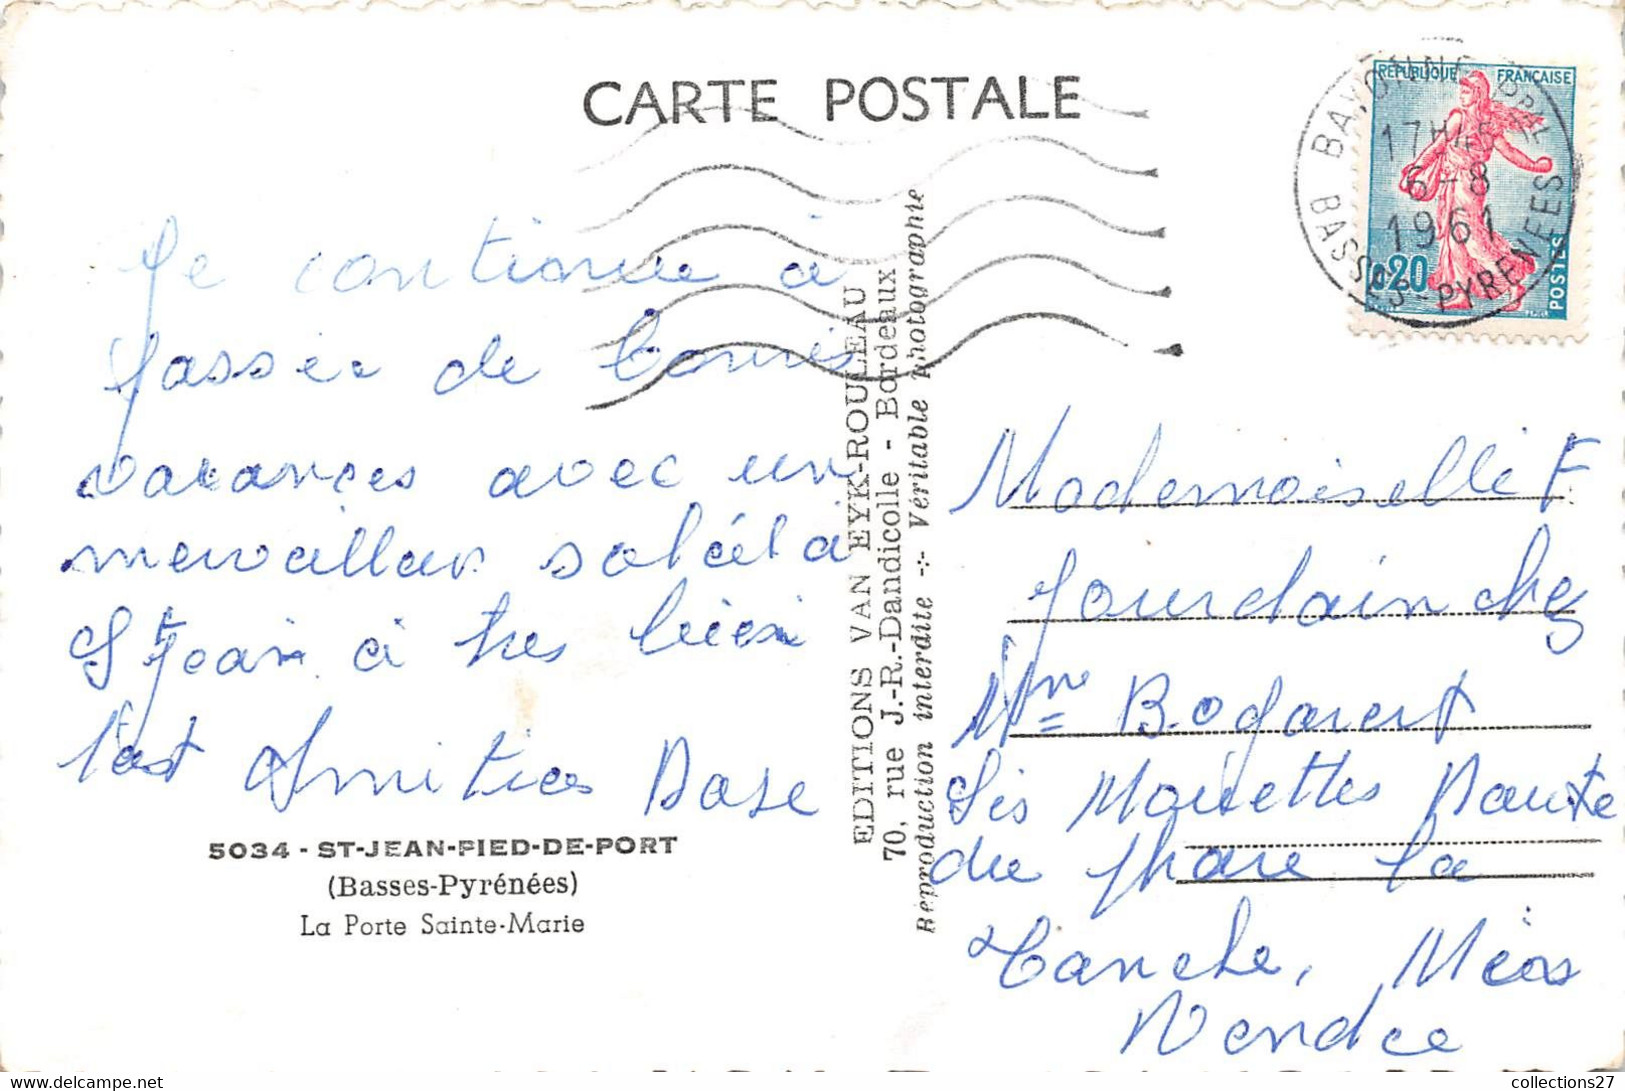 CARTE POSTALE
REPUBLIQUE FRANÇAISE
0,20
POSTES
BAYONNE PPAL
17H45
6-8
1961
BASSES-PYRENEES
Je continue à
passée de bonnes
vacances avec un
merveilleux soleil à
St Jean à tres bien
Amities
5034 - ST-JEAN-PIED-DE-PORT
(Basses-Pyrénées)
La Porte Sainte-Marie
EDITIONS VAN EYK-ROULEAU
70, rue J.-R.-Dandicolle - Bordeaux
Reproduction interdite ÷ Véritable Photographie
Mademoiselle F
Jourdain chez
Mme Bogaert
Les Mouettes Route
du phare La
Tanche, Mers
Vendée
collections27